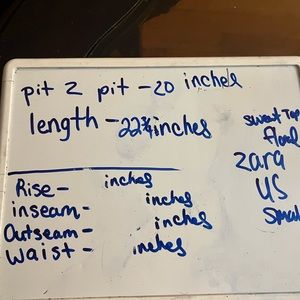 pit 2 pit - 20 inches
length - 22 3/4 inches
Rise - inches
inseam - inches
Outseam - inches
waist - inches
sweat Top
floral
zara
US
Small